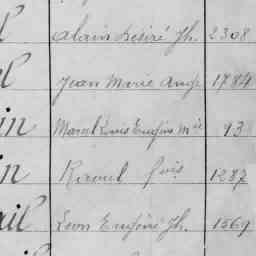 l Alain Désiré Jh. 2308
l Jean Marie Ange 1784
in Marcel Louis Eugène Mie 93
in Raoul Fois 1287
ail Léon Eugène Jh. 1569